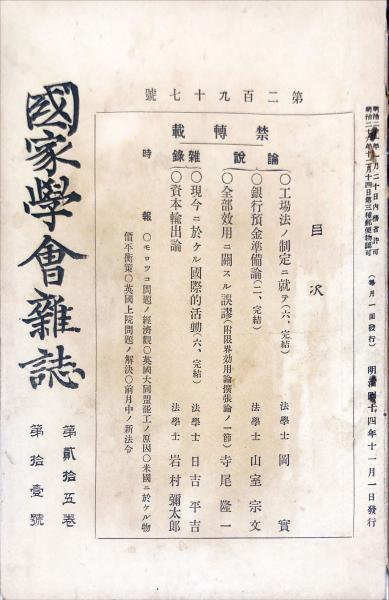 第二百九十七號
禁轉載
明治二十年十二月十四日第三種郵便物認可
(每月一回發行)
明治四十四年十一月一日發行
目次
論說
〇工場法ノ制定ニ就テ(六、完結) 法學士 岡實
〇銀行預金準備論(二、完結) 法學士 山室宗文
〇全部效用ニ關スル誤謬(附限界効用論擴張論ノ一節) 寺尾隆一
雜錄
〇現今ニ於ケル國際的活動(六、完結) 法學士 日吉平吉
〇資本輸出論 法學士 岩村彌太郎
時報
〇モロツコ問題ノ經濟觀〇英國大同盟罷工ノ原因〇米國ニ於ケル物
價平衡策〇英國上院問題ノ解決〇前月中ノ新法令
國家學會雜誌
第貳拾五卷
第拾壹號